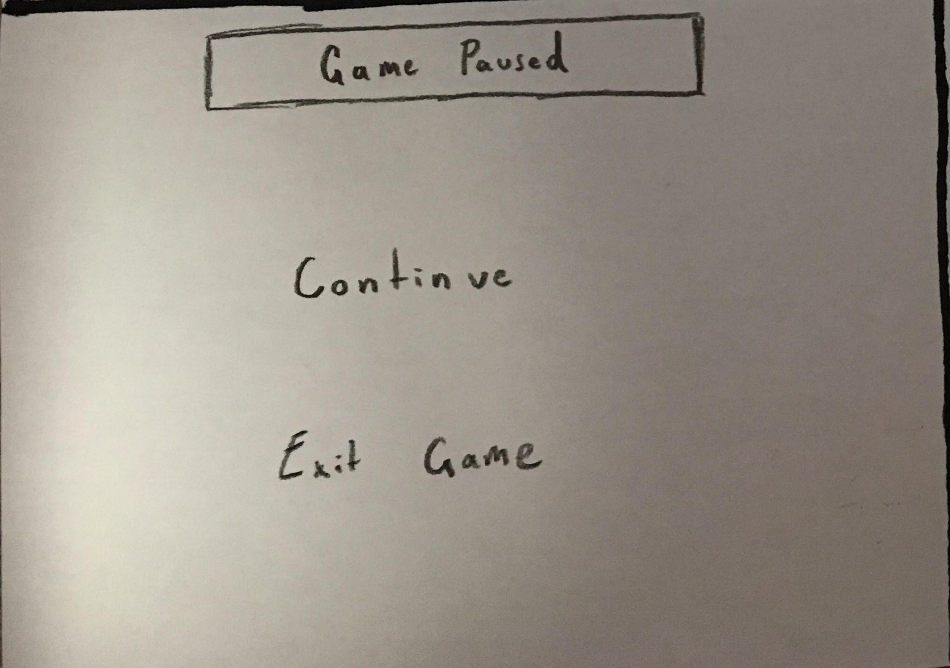 Game Paused
Continue
Exit Game